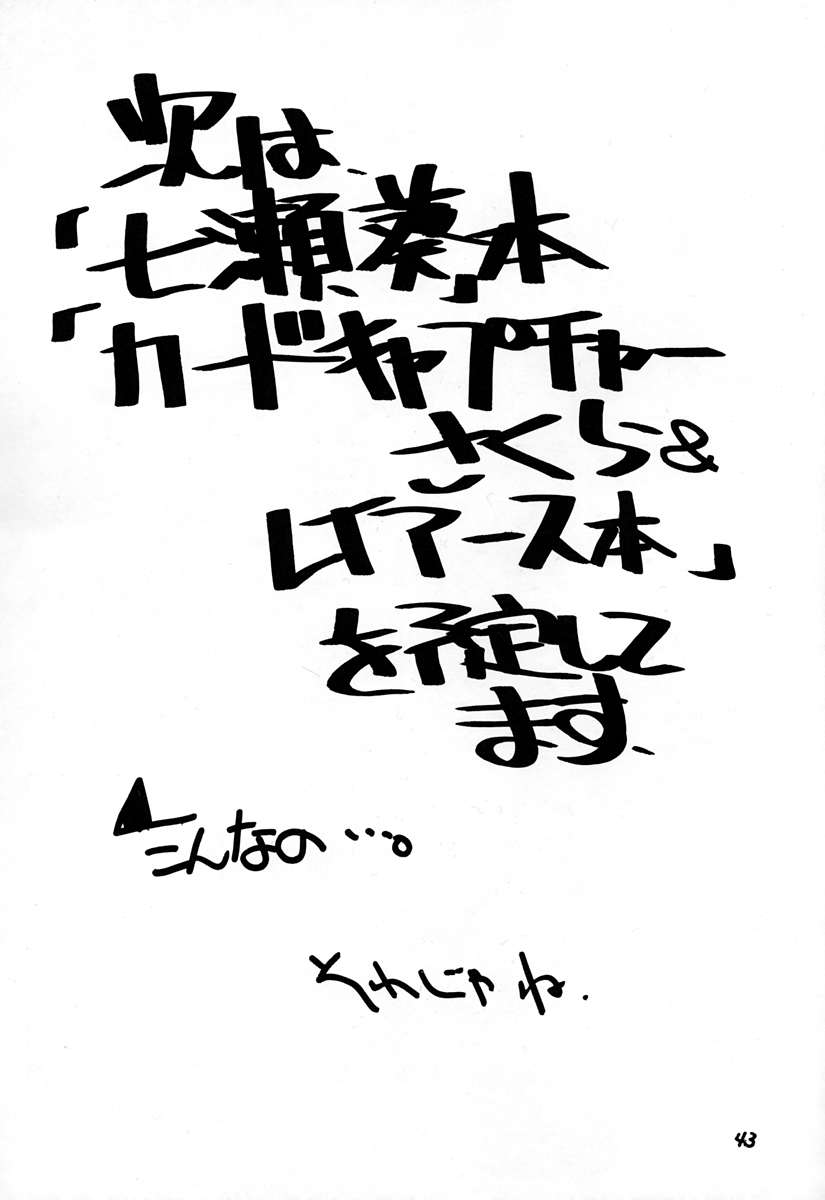 次は、
「七瀬、葵」本
「カードキャプチャー
さくら&
レイアース本」
を予定して
ます、
こんなの…。
それじゃね.
43